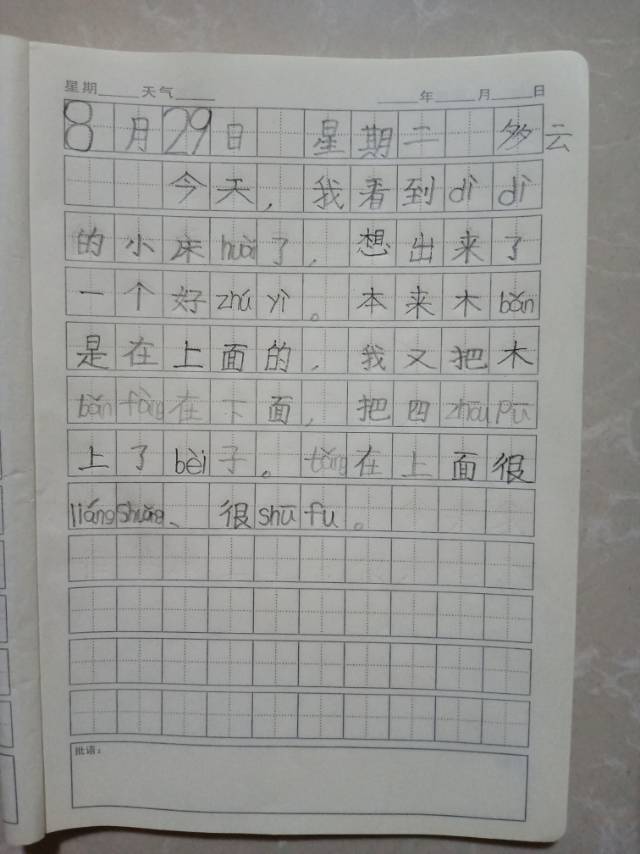 星期 天气 年 月 日
8月29日 星期二 多云
今天，我看到dì dì
的小床huài了，想出来了
一个好zhú yì。本来木bǎn
是在上面的，我又把木
bǎn fàng在下面，把四zhōu pū
上了bèi子。tǎng在上面很
liáng shuǎng、很shū fu。
批语：